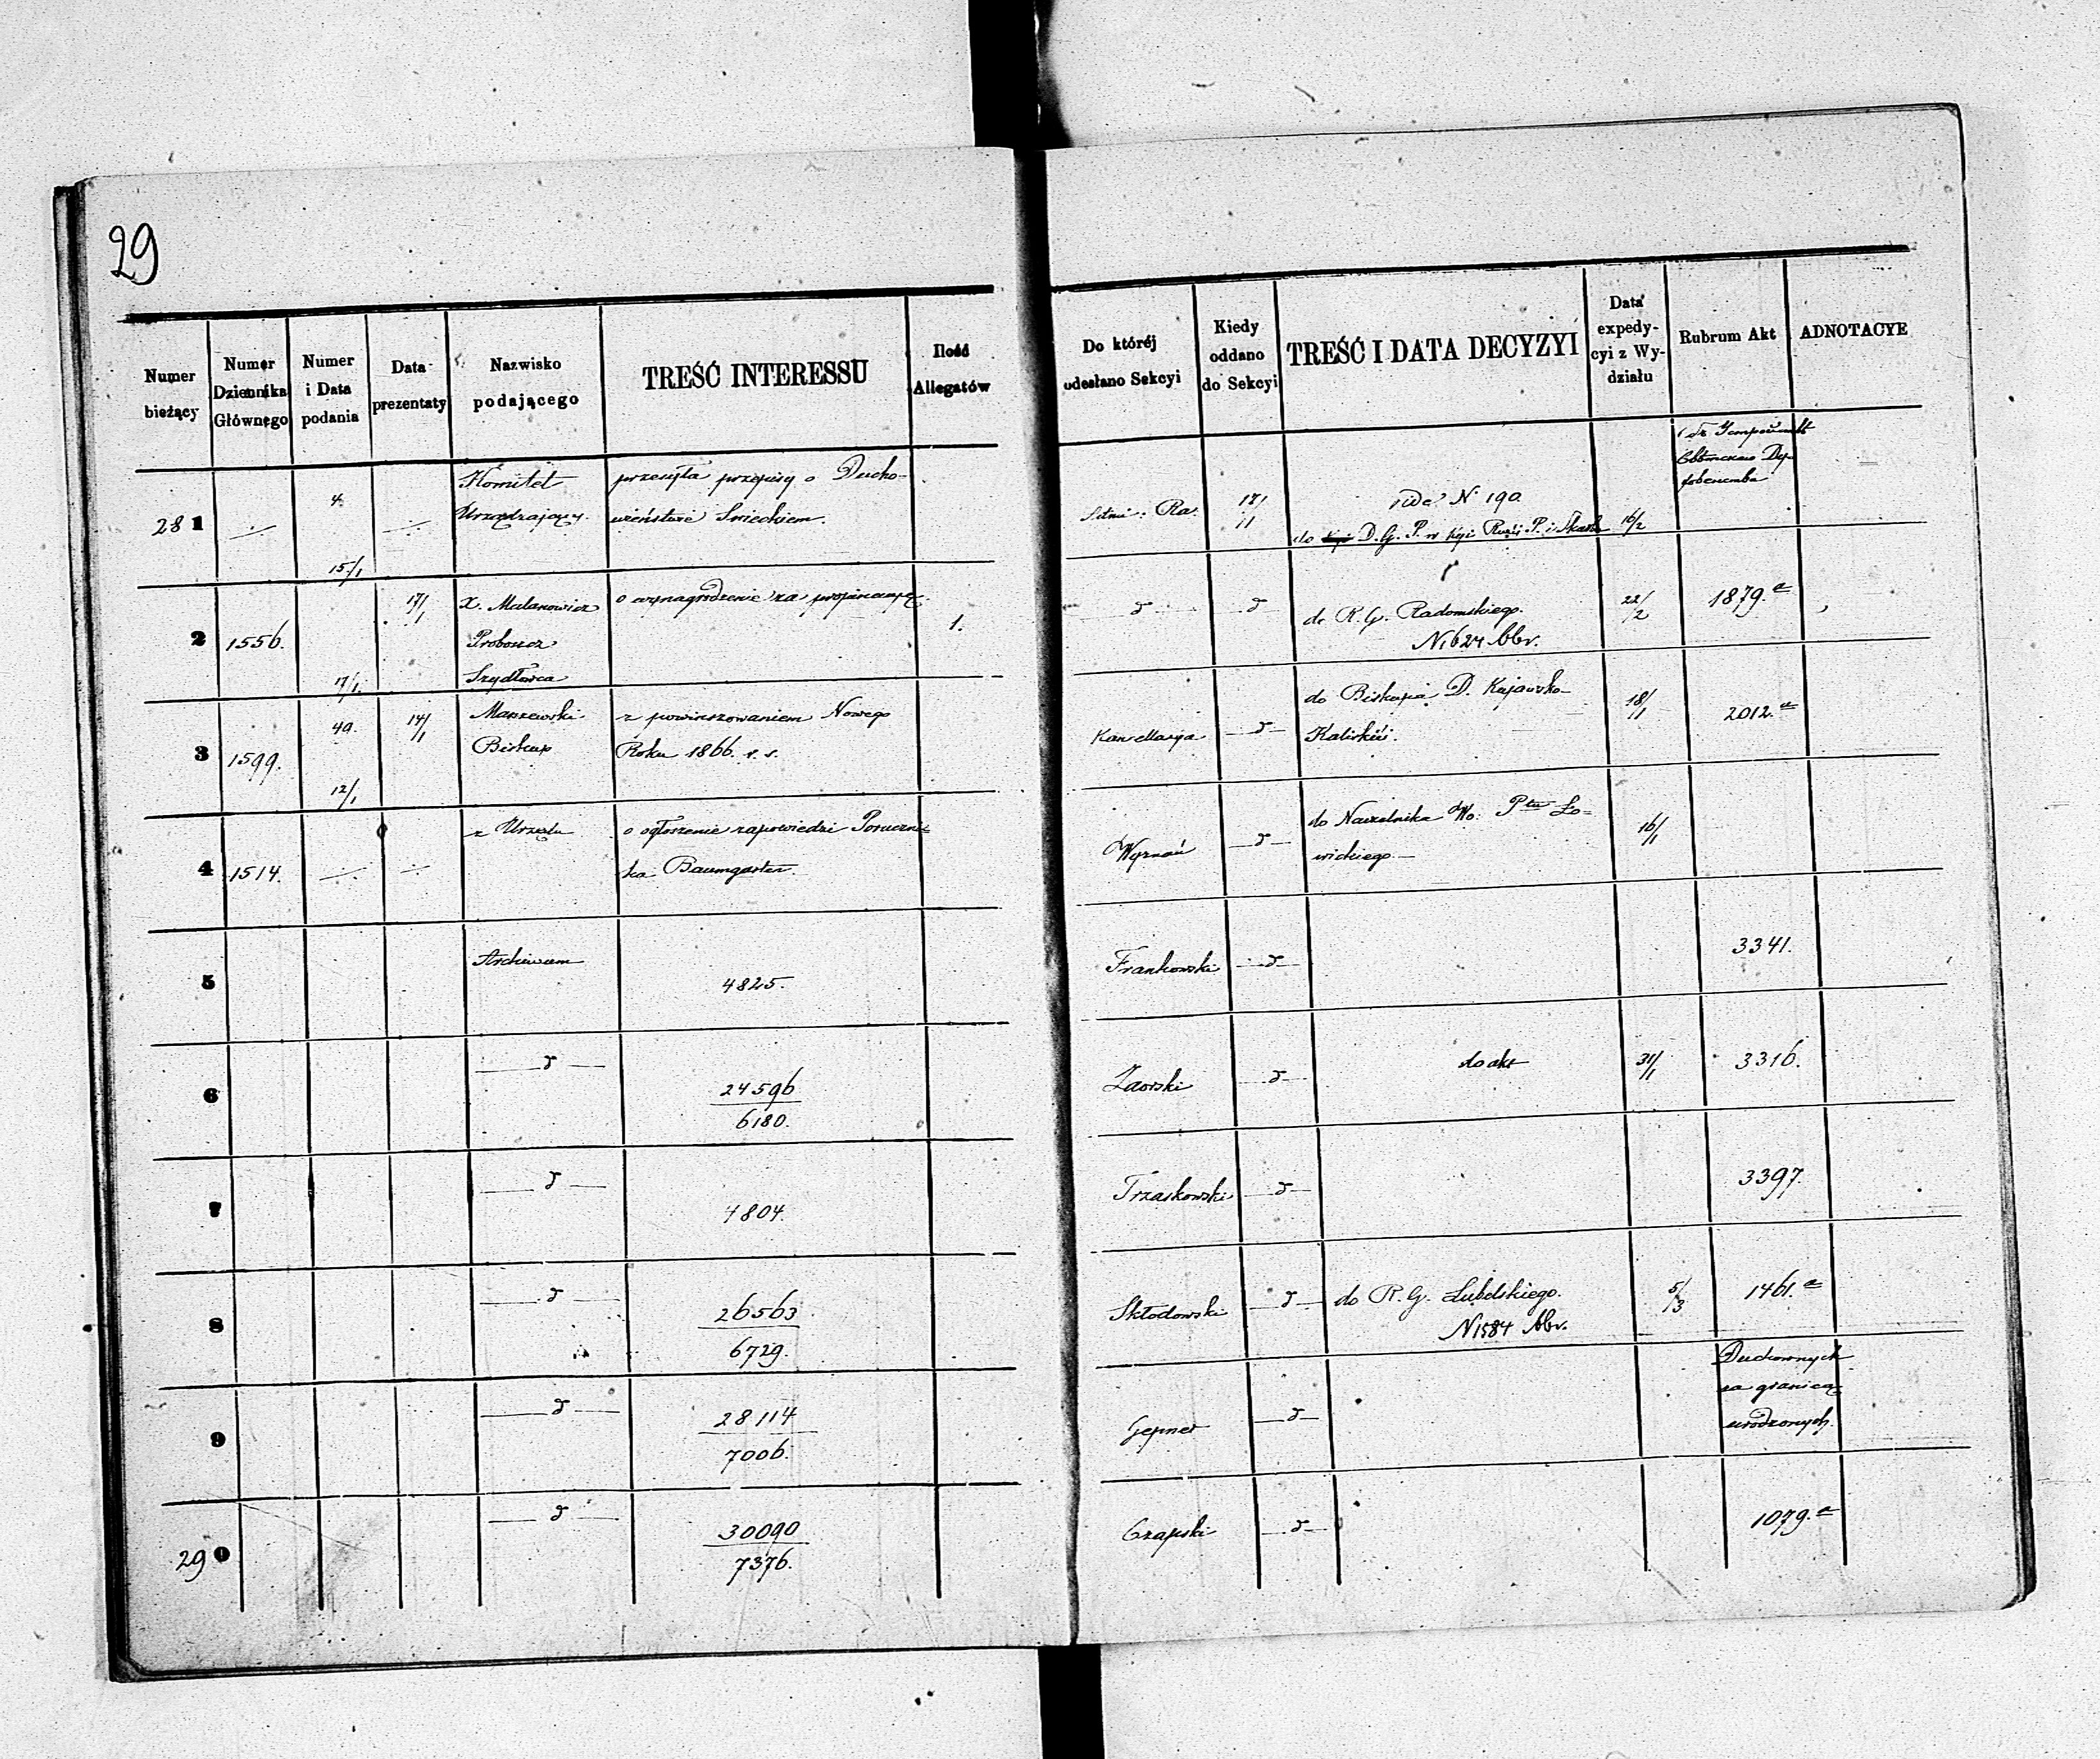 29
Numer bieżący
Numer Dziennika Głównego
Numer i Data podania
Data prezentaty
Nazwisko podającego
TREŚĆ INTERESSU
Ilość Allegatów
Do któréj odesłano Sekcyi
Kiedy oddano do Sekcyi
TREŚĆ I DATA DECYZYI
Data expedycyi z Wydziału
Rubrum Akt
ADNOTACYE
281
4.
15/1
Komitet
Urządzający
przesyła przepisy o Ducho-
wieństwie Swieckiem.
17/1
vide N. 190
do D. G. P. w Kji Rząd. P. i Skarb
16/2
2
1556.
17/1
17/1
X. Malanowicz
Proboszcz
Szydłowca
o wynagrodzenie za propinacyą
1.
d
d
do R. G. Radomskiego.
N 1624 bbr.
22/2
1879.a
3
1599.
49.
12/1
14/1
Marszewski
Biskup
z powinszowaniem Nowego
Roku 1866. v. s.
Kancellarya
d
do Biskupa D. Kujawsko-
Kaliskiéj.
18/1
2012.a
4
1514.
z Urzędu
o ogłoszenie zapowiedzi Poruczni-
ka Baumgarten.
Wyznań
d
do Naczelnika Wo. Ptu Ło-
wickiego.
16/1
5
Archiwum
4825.
Frankowski
d
3341.
6
d
24596
6180.
Zaorski
d
do akt
31/1
3316.
7
d
4804.
Trzaskowski
d
3397.
8
d
26563
6729.
Skłodowski
d
do R. G. Lubelskiego.
N 1584 bbr.
5/3
1461.a
9
d
28114
7006.
Gepner
d
Duchownych
za granicą
urodzonych.
290
d
30090
7376.
Czapski
d
1079.a